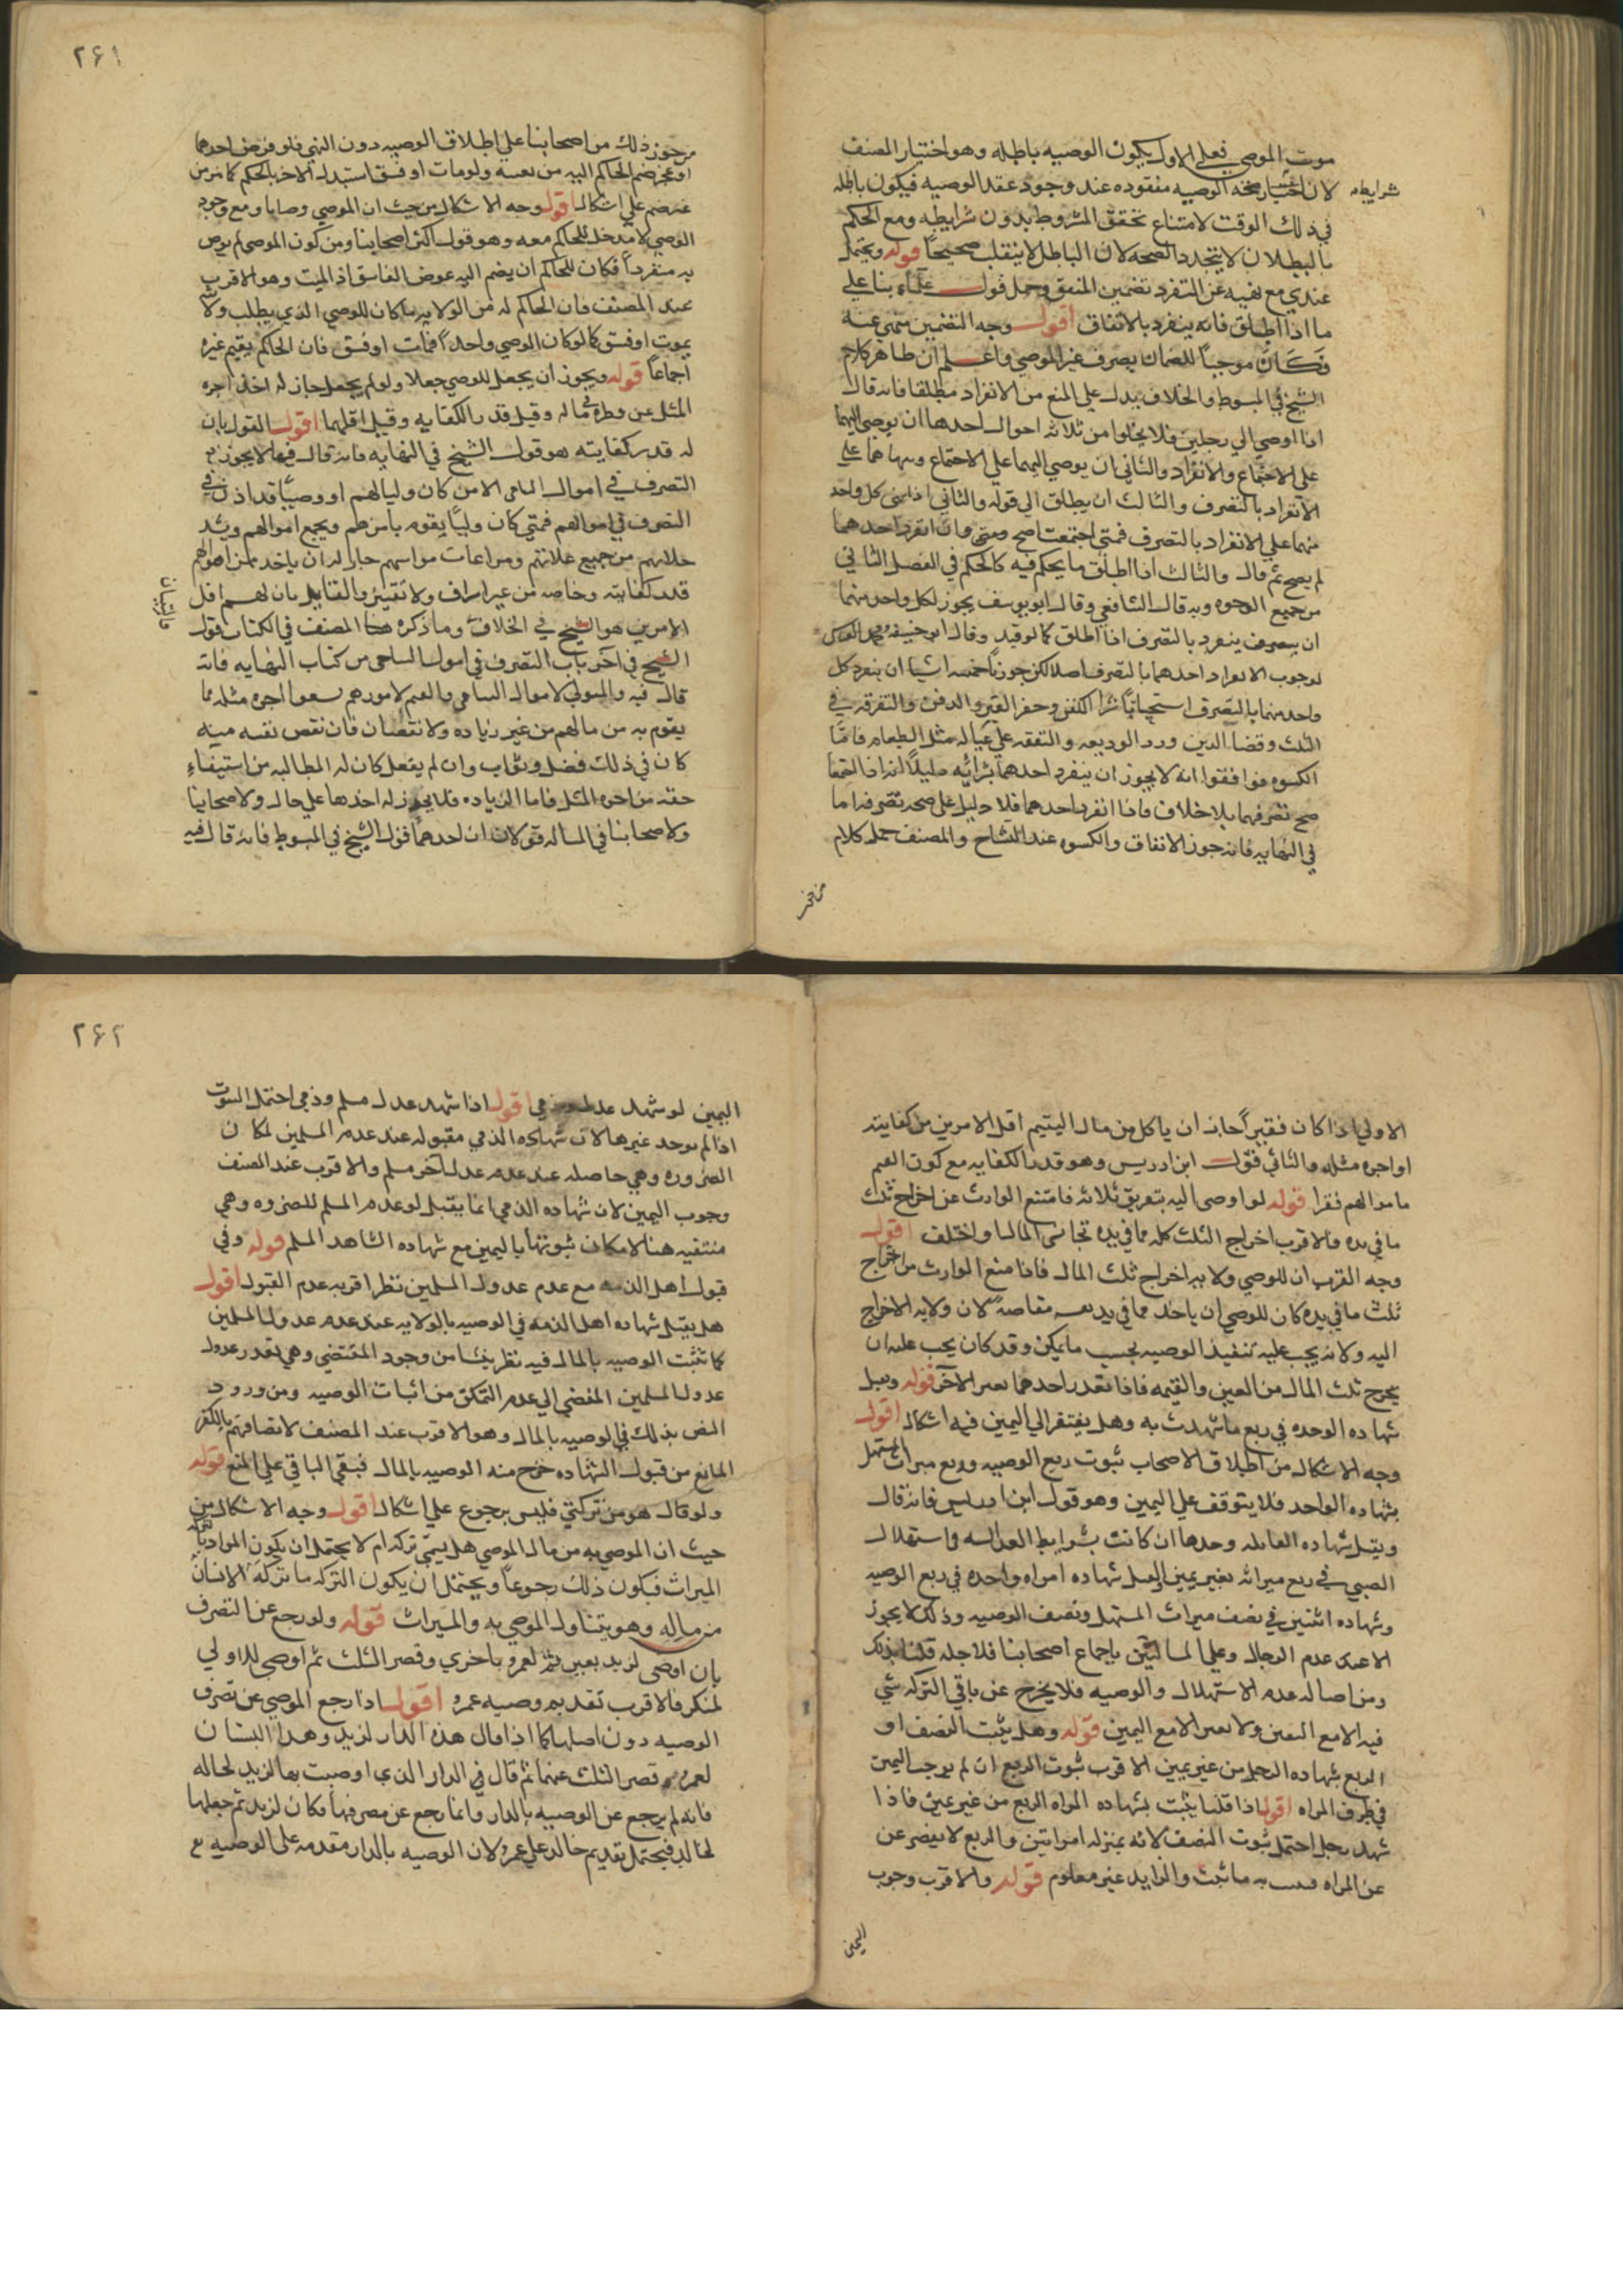 موت الموصي فعلى الاول يكون الوصيه باطله وهو اختيار المصنف
لان صحه الوصيه مفقوده عند وجود عقد الوصيه فيكون باطله
شرايط
في ذلك الوقت لامتناع تحقق المشروط بدون شرايطه ومع الحكم
بالبطلان لا يتجدد الصحه لان الباطل لا ينقلب صحيحاً قوله ويحتمل
عندي مع نهيه عن التفرد تضمين المنفق وحمل قول علمآء بنا علي
ما اذا اطلق فانه ينفرد بالاتفاق اقول وجه التضمين منهي عنه
فكان موجباً للضمان بصرف غير الموصي واعلم ان ظاهر كلام
الشيخ في المبسوط والخلاف يدل علي المنع من الانفراد مطلقا فانه قال
اذا اوصي الي رجلين فلا يخلوا من ثلاثه احوال احدها ان يوصي اليهما
علي الاجتماع والانفراد والثاني ان يوصي اليهما علي الاجتماع وينهاهما علي
الانفراد بالتصرف والثالث ان يطلق الي قوله والثاني اذا نهي كل واحد
منهما علي الانفراد بالتصرف فمتي اجتمعا صح ومتي انفرد احدهما
لم يصح ثم قال والثالث اذا اطلق ما يحكم فيه كالحكم في الفصل الثاني
من جميع الوجوه وبه قال الشافعي وقال ابو يوسف يجوز لكل واحد منهما
ان ينفرد بالتصرف اذا اطلق كما لو قيد وقال ابو حنيفه ومحمد
احدهما بالتصرف اصلا لكن جوزنا خمسه اشيا ان ينفرد كل
واحد منهما بالتصرف استحبابا شرا الكفن وحفر القبر والدفن والتفرقه في
الثلث وقضا الدين ورد الوديعه والنفقه علي عياله مثل الطعام فاما
الكسوه فوافقوا انه لا يجوز ان ينفرد احدهما بشرائه دليلنا انه اذا اجتمعا
صح تصرفهما بلا خلاف فاذا انفرد احدهما فلا دليل علي صحه تصرفه اما
في النهايه فانه جوز الانفاق والكسوه عند التشاح والمصنف حمل كلام
من جوز
۲۶۱
من جوز ذلك من اصحابنا علي اطلاق الوصيه دون النهي فلو مرض احدهما
او عجز ضم الحاكم اليه من يعينه ولو مات او فسق استبدل الاخر بالحكم كما مر من
غير ضم علي اشكال اقول وجه الاشكال من حيث ان الموصي وصايا ومع وجود
الوصي لا مدخل للحاكم معه وهو قول اكثر اصحابنا ومن كون الموصي لم يرض
به منفرداً فكان للحاكم ان يضم اليه عوض الفاسق اذ الميت وهو الاقرب
عند المصنف فان الحاكم له من الولايه ما كان للوصي الذي بطلت
بموت او فسق كما لو كان الوصي واحداً فمات او فسق فان الحاكم يقيم غيره
اجماعاً قوله ويجوز ان يجعل للوصي جعلا ولو لم يجعل جاز له اخذ اجره
المثل عن نظره في ماله وقيل قدر الكفايه وقيل اقلهما اقول القول بان
له قدر كفايته هو قول الشيخ في النهايه فانه قال فيها لا يجوز
التصرف في اموال اليتامي الا من كان وليا لهم او وصيّا قد اذن في
التصرف في اموالهم فمتي كان وليّا يقوم بامرهم ويجمع اموالهم
من جميع غلاتهم ومراعات مواشيهم جاز له ان ياخذ من اموالهم
قدر كفايته وحاجته من غير اسراف ولا تقتير والقايل بان لهم اقل
الامرين هو الشيخ في الخلاف وما ذكره المصنف في الكتاب قول
الشيخ في آخر باب التصرف في اموال اليتامي من كتاب النهايه فانه
قال فيه والمتولي لاموال اليتامي والقيم لامورهم يستحق اجره مثله مما
يقوم به من مالهم من غير زياده ولا نقصان فان نقص نفسه منه
كان في ذلك فضل وثواب وان لم يفعل كان له المطالبه من استيفاء
حقه من اجره المثل فاما الزياده فلا يجوز له اخذها علي حال ولاصحابنا
ولاصحابنا في المساله قولان ان احدهما قول الشيخ في المبسوط فانه قال فيه
الاولي اذا كان فقيراً جاز ان ياكل من مال اليتيم اقل الامرين من كفايته
او اجره مثله والثاني قول ابن ادريس وهو قدر الكفايه مع كون القيم
باموالهم فقرا قوله لو اوصي اليه بتفريق ثلثه فامتنع الوارث عن اخراج ثلث
ما في يده فالاقرب اخراج الثلث كله مما في يده تجانس المال او اختلف اقول
وجه القرب ان للوصي ولايه اخراج ثلث المال فاذا منع الوارث من اخراج
ثلث ما في يده كان للوصي ان ياخذ مما في يده مقاصه لان ولايه الاخراج
اليه ولانه يجب عليه تنفيذ الوصيه بحسب ما يمكن وقد كان يجب عليه ان
يخرج ثلث المال من العين والقيمه فاذا تعذر احدهما تعين الآخر قوله وتقبل
شهاده الواحده في ربع ما شهدت به وهل يفتقر الي اليمين فيه اشكال اقول
وجه الاشكال من اطلاق الاصحاب ثبوت ربع الوصيه وربع ميراث المستهل
بشهاده الواحد فلا يتوقف علي اليمين وهو قول ابن ادريس فانه قال
ويقبل شهاده القابله وحدها ان كانت بشرايط العداله في استهلال
الصبي في ربع ميراثه بغير يمين ويقبل شهاده امراه واحده في ربع الوصيه
وشهاده اثنين في نصف ميراث المستهل ونصف الوصيه وذلك لا يجوز
الا عند عدم الرجال وعلي المسالتين باجماع اصحابنا فلاجله قلنا بذلك
ومن اصاله عدم الاستهلال والوصيه فلا يخرج عن باقي التركه شي
فيه الا مع اليقين ولا يقين الا مع اليمين قوله وهل يثبت النصف او
الربع بشهاده الرجل من غير يمين الاقرب ثبوت الربع ان لم يوجب اليمين
في طرف المراه اقول اذا قلنا يثبت بشهاده المراه الربع من غير يمين فاذا
شهد رجل احتمل ثبوت النصف لانه بمنزله امراتين والربع لا يقصر عن
عن المراه ما ثبت والزايد غير معلوم قوله والاقرب وجوب
اليمين
۲۶۲
اليمين لو شهد عدل وذمي اقول اذا شهد عدل مسلم وذمي احتمل الثبوت
اذا لم يوجد غيرها لان شهاده الذمي مقبوله عند عدم المسلمين لمكان
الضروره وهي حاصله عند عدم عدل آخر مسلم والاقرب عند المصنف
وجوب اليمين لان شهاده الذمي انما يقبل لو عدم المسلم للضروره وهي
منتفيه هنا لامكان ثبوتها باليمين مع شهاده الشاهد المسلم قوله وفي
قبول اهل الذمه مع عدم عدول المسلمين نظر اقربه عدم القبول اقول
هل يقبل شهاده اهل الذمه في الوصيه بالولايه عند عدم عدول المسلمين
كما تثبت الوصيه بالمال فيه نظر ينشا من وجود المقتضي وهي تعذر عدول
عدول المسلمين المفضي الي عدم التمكن من اثبات الوصيه ومن ورود
النص بذلك في الوصيه بالمال وهو الاقرب عند المصنف لاتصافهم بالكفر
المانع من قبول الشهاده خرج منه الوصيه بالمال فبقي الباقي علي المنع قوله
ولو قال هو من تركتي فليس برجوع علي اشكال اقول وجه الاشكال من
حيث ان الموصي به من مال الموصي هل يسمي تركه ام لا يحتمل ان يكون المراد
الميراث فيكون ذلك رجوعاً ويحتمل ان يكون التركه ما تركه الانسان
من ماله وهو يتناول الموصي به والميراث قوله ولو رجع عن التصرف
بان اوصي لزيد بعين ثم لعمرو باخري وقصر الثلث ثم اوصي للاولي
لمنكر فالاقرب تقديم وصيه عمرو اقول اذا رجع الموصي عن تصرف
الوصيه دون اصلها كما اذا قال هذه الدار لزيد وهذا البستان
لعمرو وقصر الثلث عنهما ثم قال في الدار الذي اوصيت بها لزيد لخالد
فانه لم يرجع عن الوصيه بالدار وانما رجع عن مصرفها فكان لزيد ثم جعلها
لخالد فيحتمل تقديم خالد علي عمرو لان الوصيه بالدار مقدمه علي الوصيه